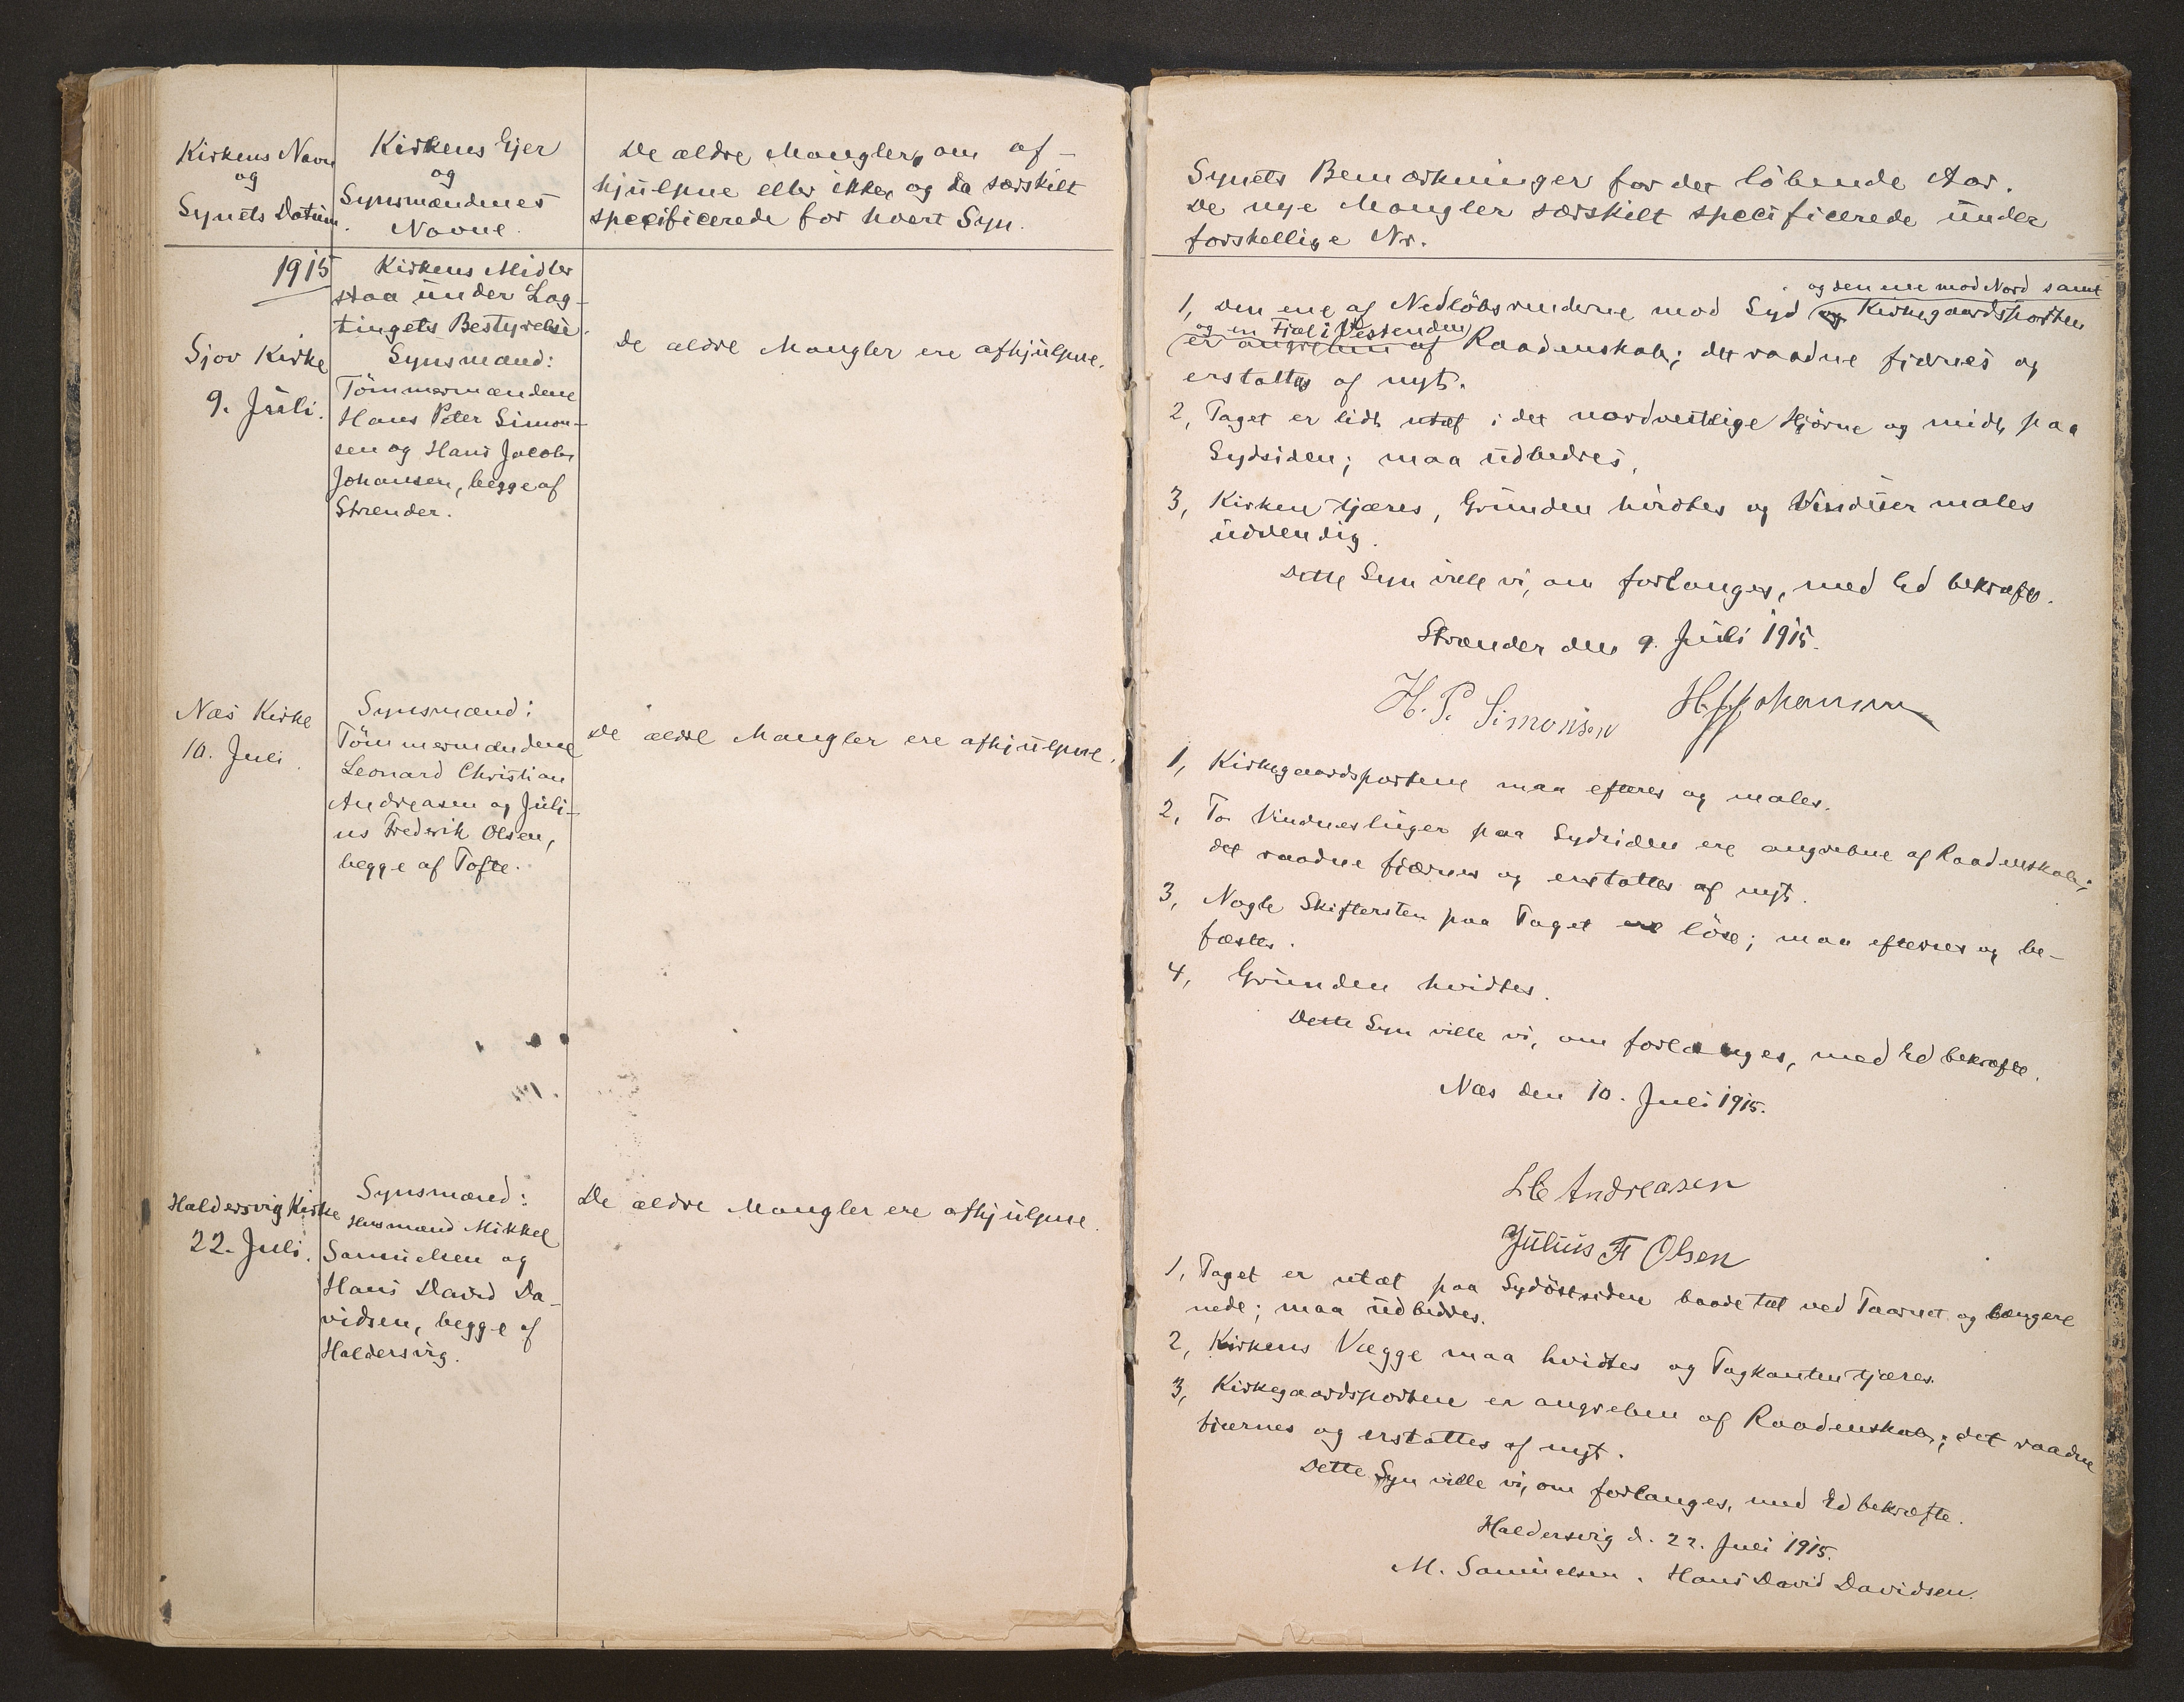 Kirkens Navn
og
Synets Datum.
Kirkens Ejer
og
Synsmændenes
Navne.
De ældre Mangler, om af-
hjulpne eller ikke, og da særskilt
specificerede for hvert Syn.
1915
Sjov Kirke
9. Juli.
Kirkens Midler
staa under Lag-
tingets Bestyrelse.
Synsmænd:
Tömmermændene
Hans Peter Simon-
sen og Hans Jacob
Johansen, begge af
Strender.
De ældre Mangler ere afhjulpne.
Næs Kirke
10. Juli.
Synsmænd:
Tömmermændene
Leonard Christian
Andreasen og Juli-
us Frederik Olsen,
begge af Tofte.
De ældre Mangler ere afhjulpne.
Haldersvig Kirke
22. Juli.
Synsmænd:
Husmand Mikkel
Samuelsen og
Hans David Da-
vidsen, begge af
Haldersvig.
De ældre Mangler ere afhjulpne.
Synets Bemærkninger for det löbende Aar.
De nye Mangler særskilt specificerede under
forskellige Nr.
og den ene mod Nord samt
1, Den ene af Nedlöbsrenderne mod Syd og Kirkegaardsporten
og en Fjæl i Vestenden
er angreben af Raadenskab; det raadne fjærnes og
erstattes af nyt.
2, Taget er lidt utæt i det nordvestlige Hjörne og midt paa
Sydsiden; maa udbedres.
3, Kirken tjæres, Grunden hvidtes og Vinduer males
udvendig.
Dette Syn ville vi, om forlanges, med Ed bekræfte.
Strænder den 9. Juli 1915.
H. P. Simonsen H. J. Johansen
1, Kirkegaardsportene maa efteres og males.
2, To Vindueslinger paa Sydsiden ere angrebne af Raadenskab;
det raadne fjærnes og erstattes af nyt.
3, Nogle Skiftersten paa Taget ere löse; maa efterses og be-
fæstes.
4, Grunden hvidtes.
Dette Syn ville vi, om forlanges, med Ed bekræfte.
Næs den 10. Juli 1915.
L C Andreasen
Julius Fr Olsen
1, Taget er utæt paa Sydöstsiden baade tæt ved Taarnet og længere
nede; maa udbedres.
2, Kirkens Vægge maa hvidtes og Tagkanten tjæres.
3, Kirkegaardsporten er angreben af Raadenskab; det raadne
fjærnes og erstattes af nyt.
Dette Syn ville vi, om forlanges, med Ed bekræfte.
Haldersvig d. 22. Juli 1915.
M. Samuelsen. Hans David Davidsen.